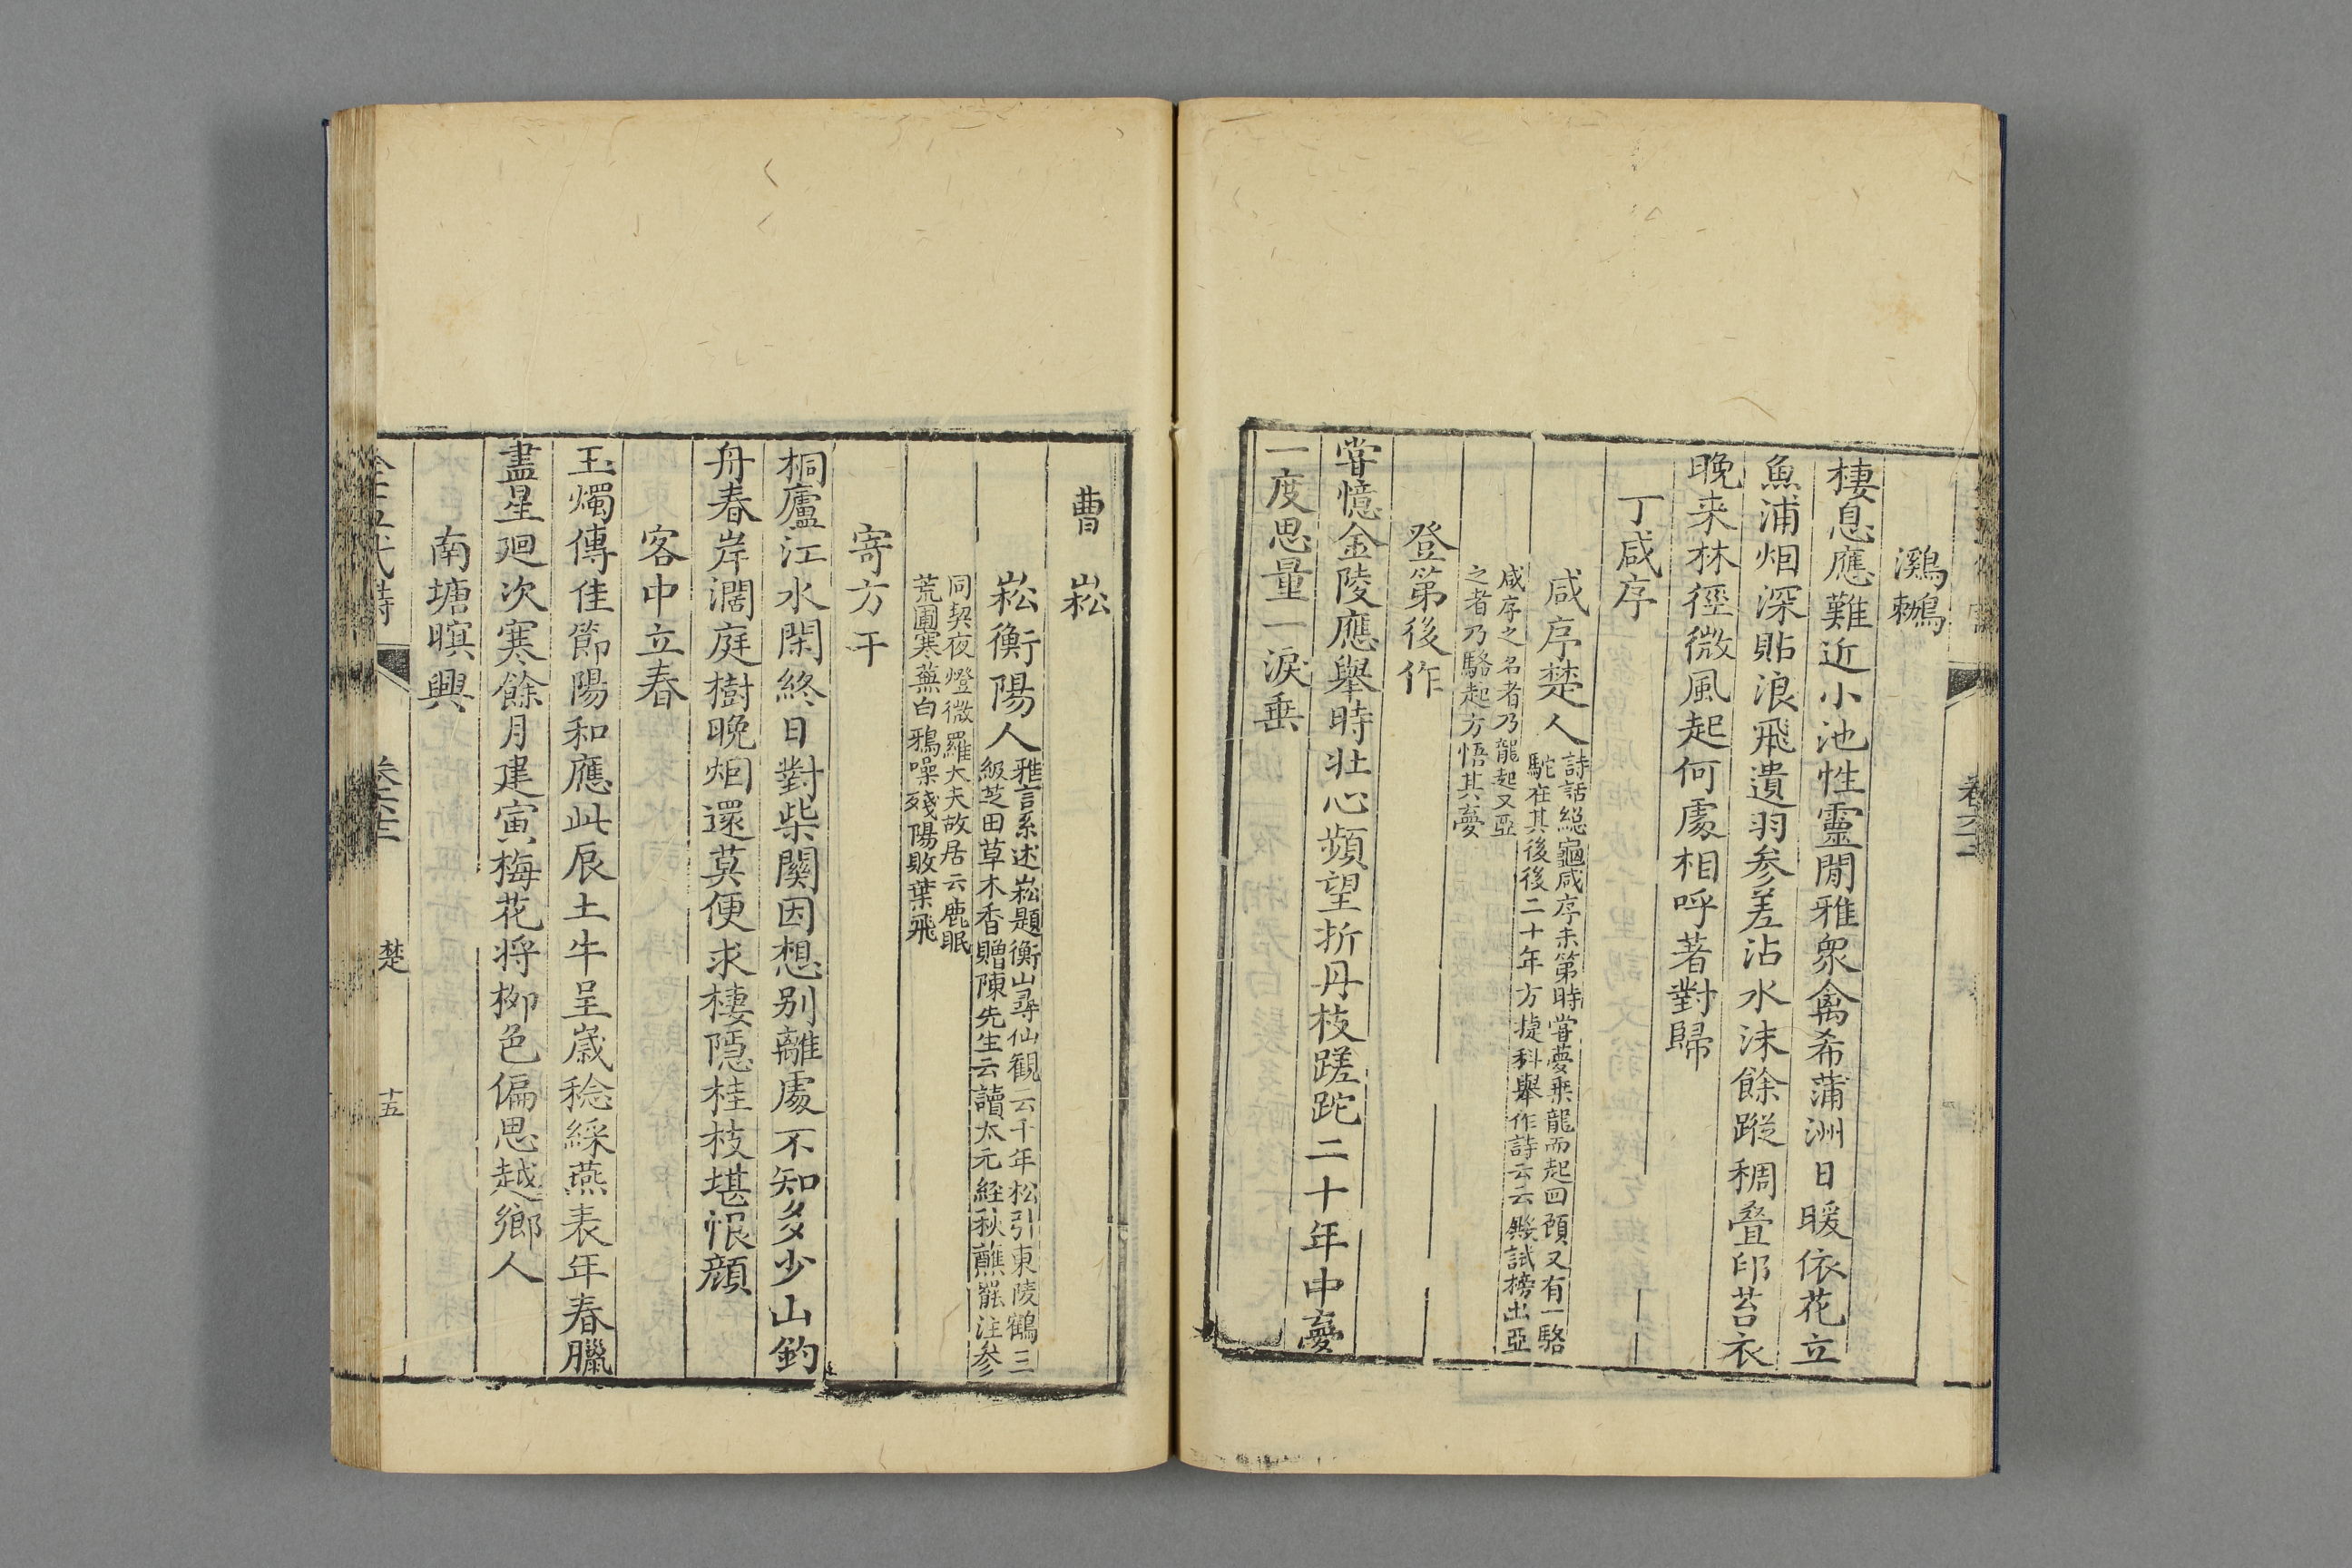 鸂𪆟
棲息應難近小池性靈閒雅衆禽希蒲洲日暖依花立
魚浦烟深貼浪飛遺羽参差沾水沫餘蹤稠叠印苔衣
晚来林徑微風起何處相呼著對歸
丁咸序
咸序楚人
詩話緫龜咸序未第時甞夢乘龍而起回顧又有一駱
駝在其後後二十年方㨗科舉作詩云云殿試榜出亞
咸序之名者乃龍起又亞
之者乃駱起方悟其夣
登第後作
甞憶金陵應舉時壮心頻望折丹枝蹉跎二十年中夣
一度思量一淚垂
曹崧
崧衡陽人
雅言系述崧題衡山尋仙觀云千年松引東陵鶴三
級芝田草木香贈陳先生云讀太元経秋醮罷注参
同契夜燈微羅大夫故居云鹿眠
荒圃寒蕪白鴉噪殘陽敗葉飛
寄方干
桐廬江水閑終日對柴關因想别離處不知多少山釣
舟春岸濶庭樹晚烟還莫便求棲隠桂枝堪恨顔
客中立春
玉燭傳佳節陽和應此辰土牛呈歲稔綵燕表年春臘
盡星廻次寒餘月建寅梅花将柳色偏思越鄉人
南塘暝興
楚
十五